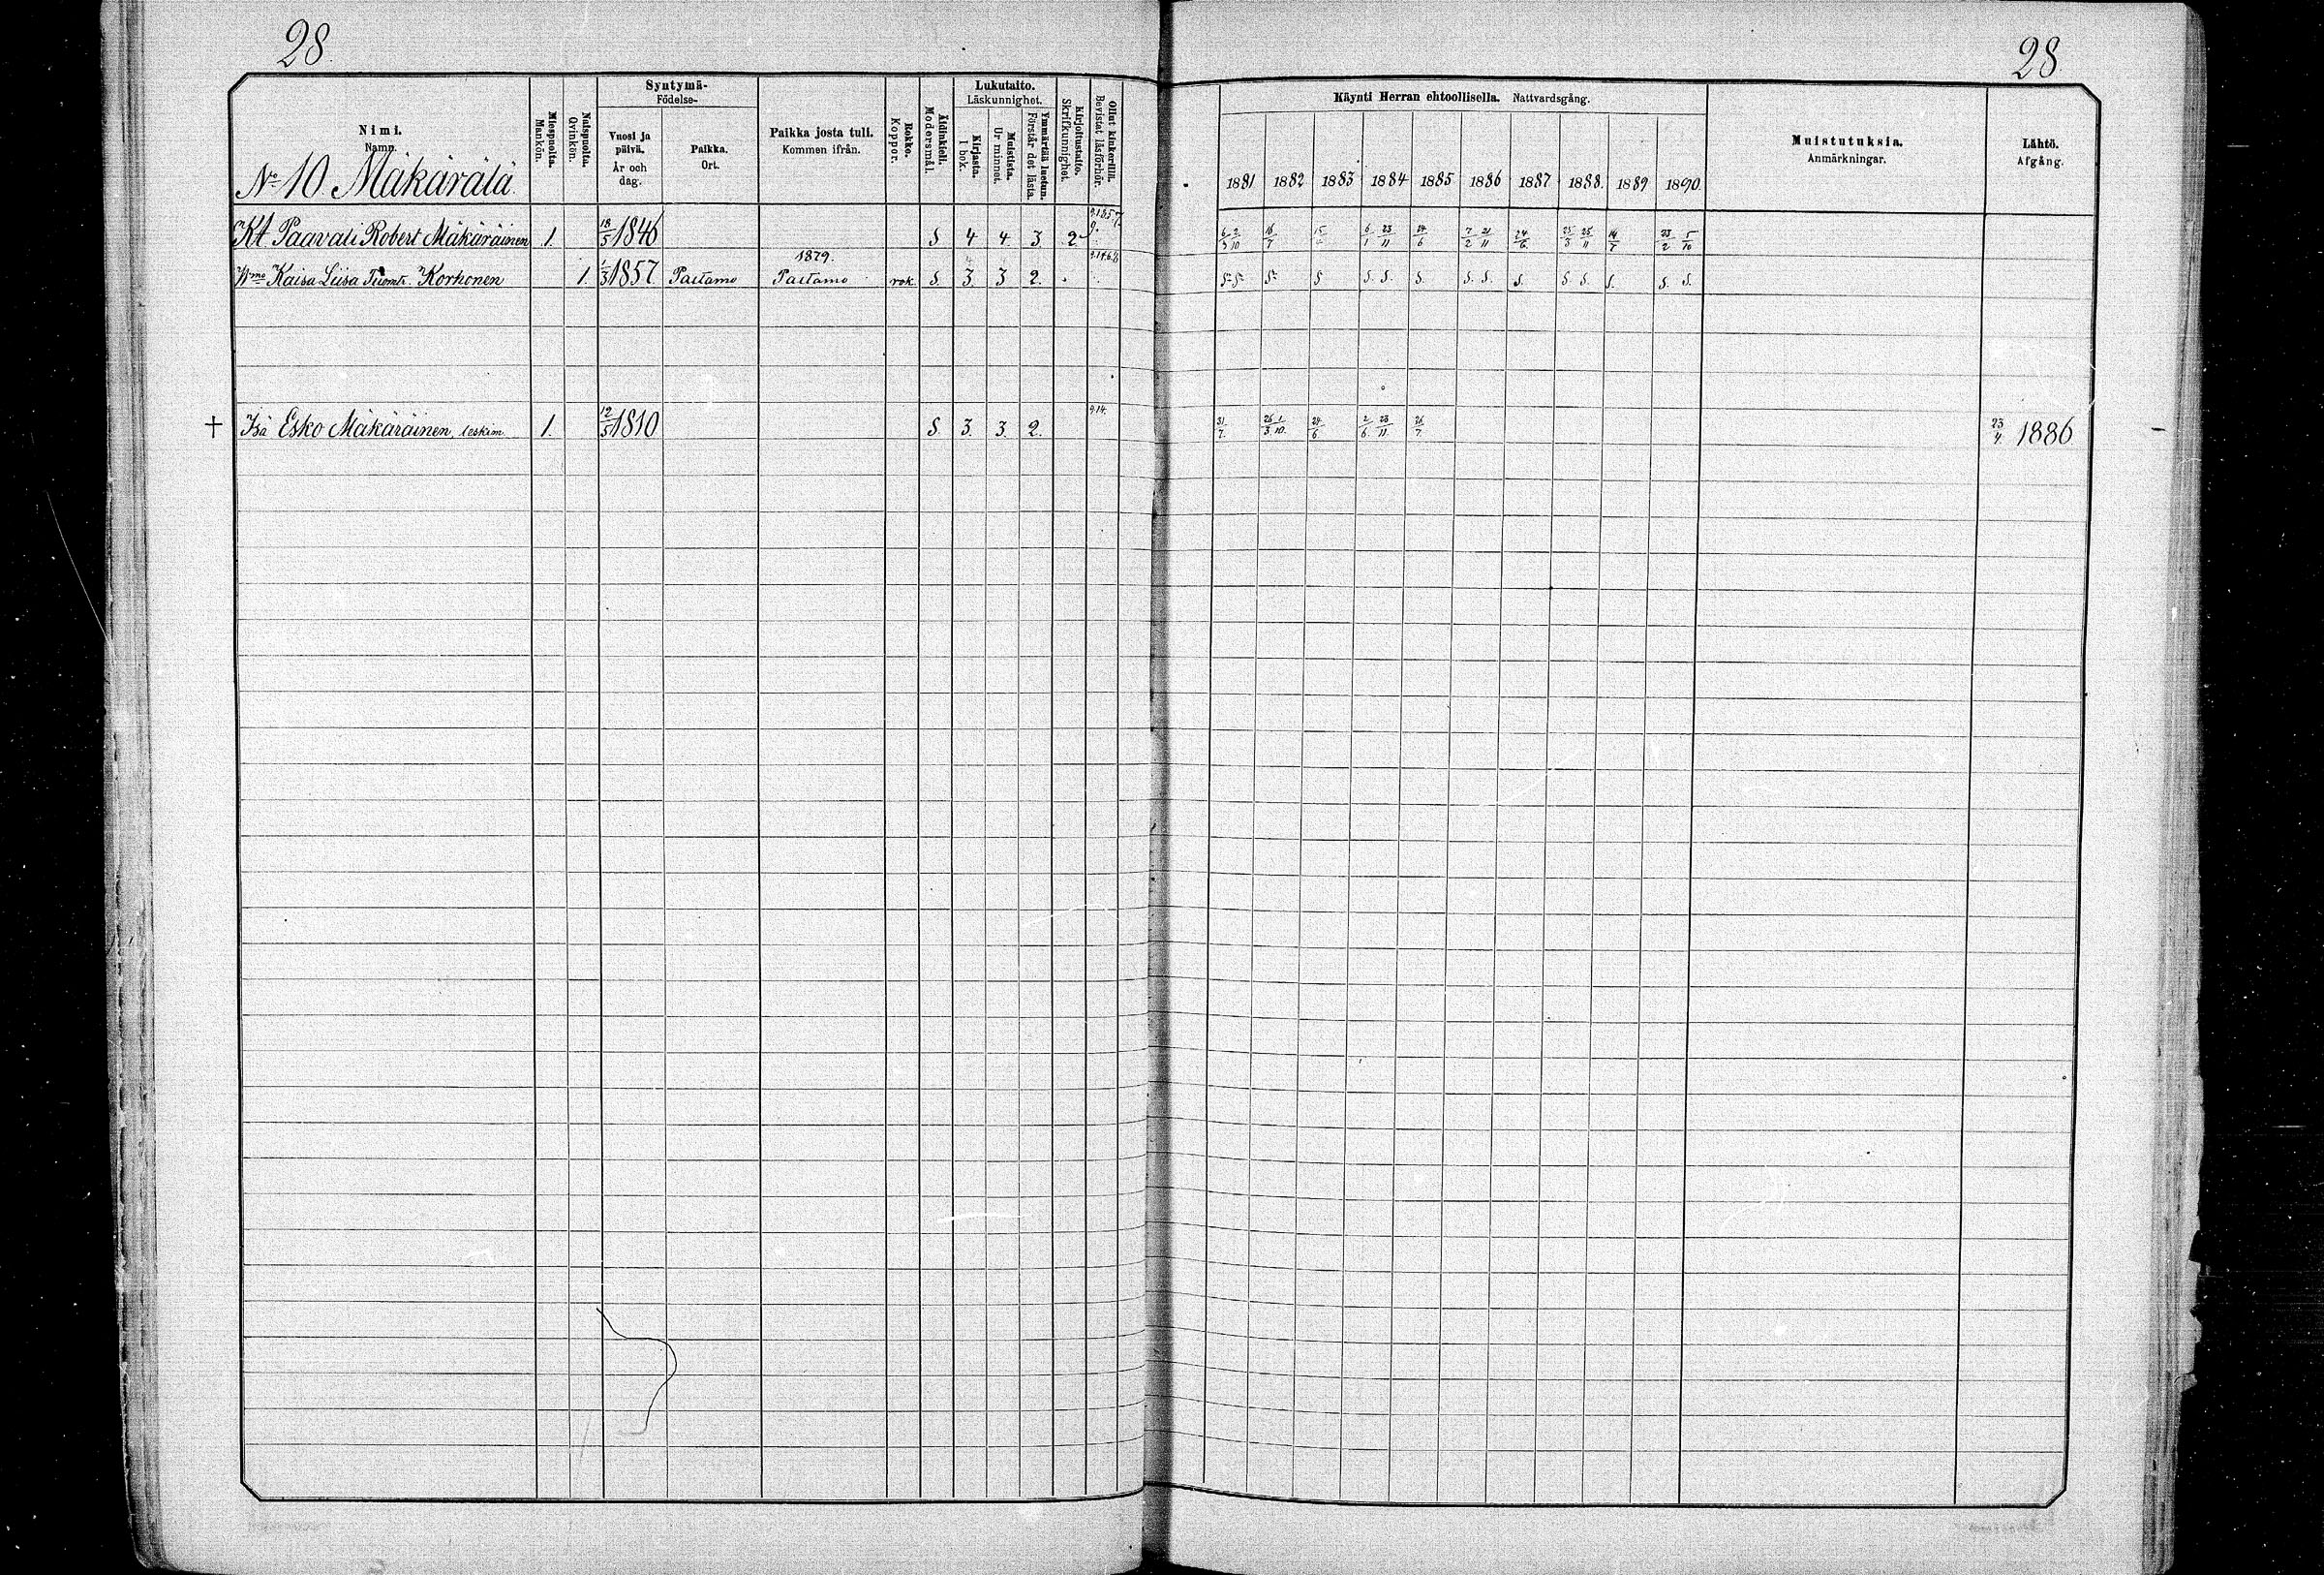 28.
28.
Syntymä-
Födelse-
Lukutaito.
Läskunnighet.
Nimi.
Namn.
Miespuolta.
Mankön.
Naispuolta.
Qvinkön.
Vuosi ja päivä.
År och dag.
Paikka.
Ort.
Paikka josta tuli.
Kommen ifrån.
Rokko.
Koppor.
Äidinkieli.
Modersmål.
Kirjasta.
I bok.
Muistista.
Ur minnet.
Ymmärtää luetun.
Förstår det lästa.
Kirjoitustaito.
Skrifkunnighet.
Ollut kinkerillä.
Bevistat läsförhör.
Käynti Herran ehtoollisella. Nattvardsgång.
1881 1882 1883 1884 1885 1886 1887 1888. 1889 1890
Muistutuksia.
Anmärkningar.
Lähtö.
Afgång.
No 10. Mäkärälä.
Kt. Paavali Robert Mäkäräinen 1. 18/5 1846 S 4 4. 3. 2 6/3 2/10 16/7 6/1 23/11 24/6 7/2 21/11 24/6. 25/3 25/11 14/7 23/2 5/10
1879.
Wmo Kaisa Liisa Tuomtr. Korhonen 1. 1/3 1857. Paltamo Paltamo rok. S. 3. 3 2. S. S. S. S S. S. S. S. S. S. S. S. S. S. S.
† Isä Esko Mäkäräinen, leskim. 1. 12/5 1810 S. 3. 3. 2. 9.14. 31/7. 26/3 1/10. 24/6 2/6. 23/11. 26/7. 23/4. 1886